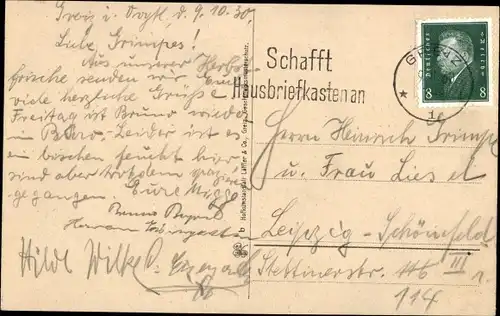 Greiz i. Vogtl. d. 9.10.30.
Liebe Grimpes!
Aus unserer Herbst-
frische senden wir Euch
viele herzliche Grüße
Freitag ist Bruno wieder
in Büro. Leider ist es
ein bischen feucht hier
sind aber trotzdem
gegangen. Eure
Bruno
Hilde Wilke
Schafft
Hausbriefkasten an
GREIZ
Deutsches Reich
8 8
Herrn Heinrich Grimpe
u. Frau Liesel
Leipzig-Schönefeld
Stettinerstr. 116 III r.
114